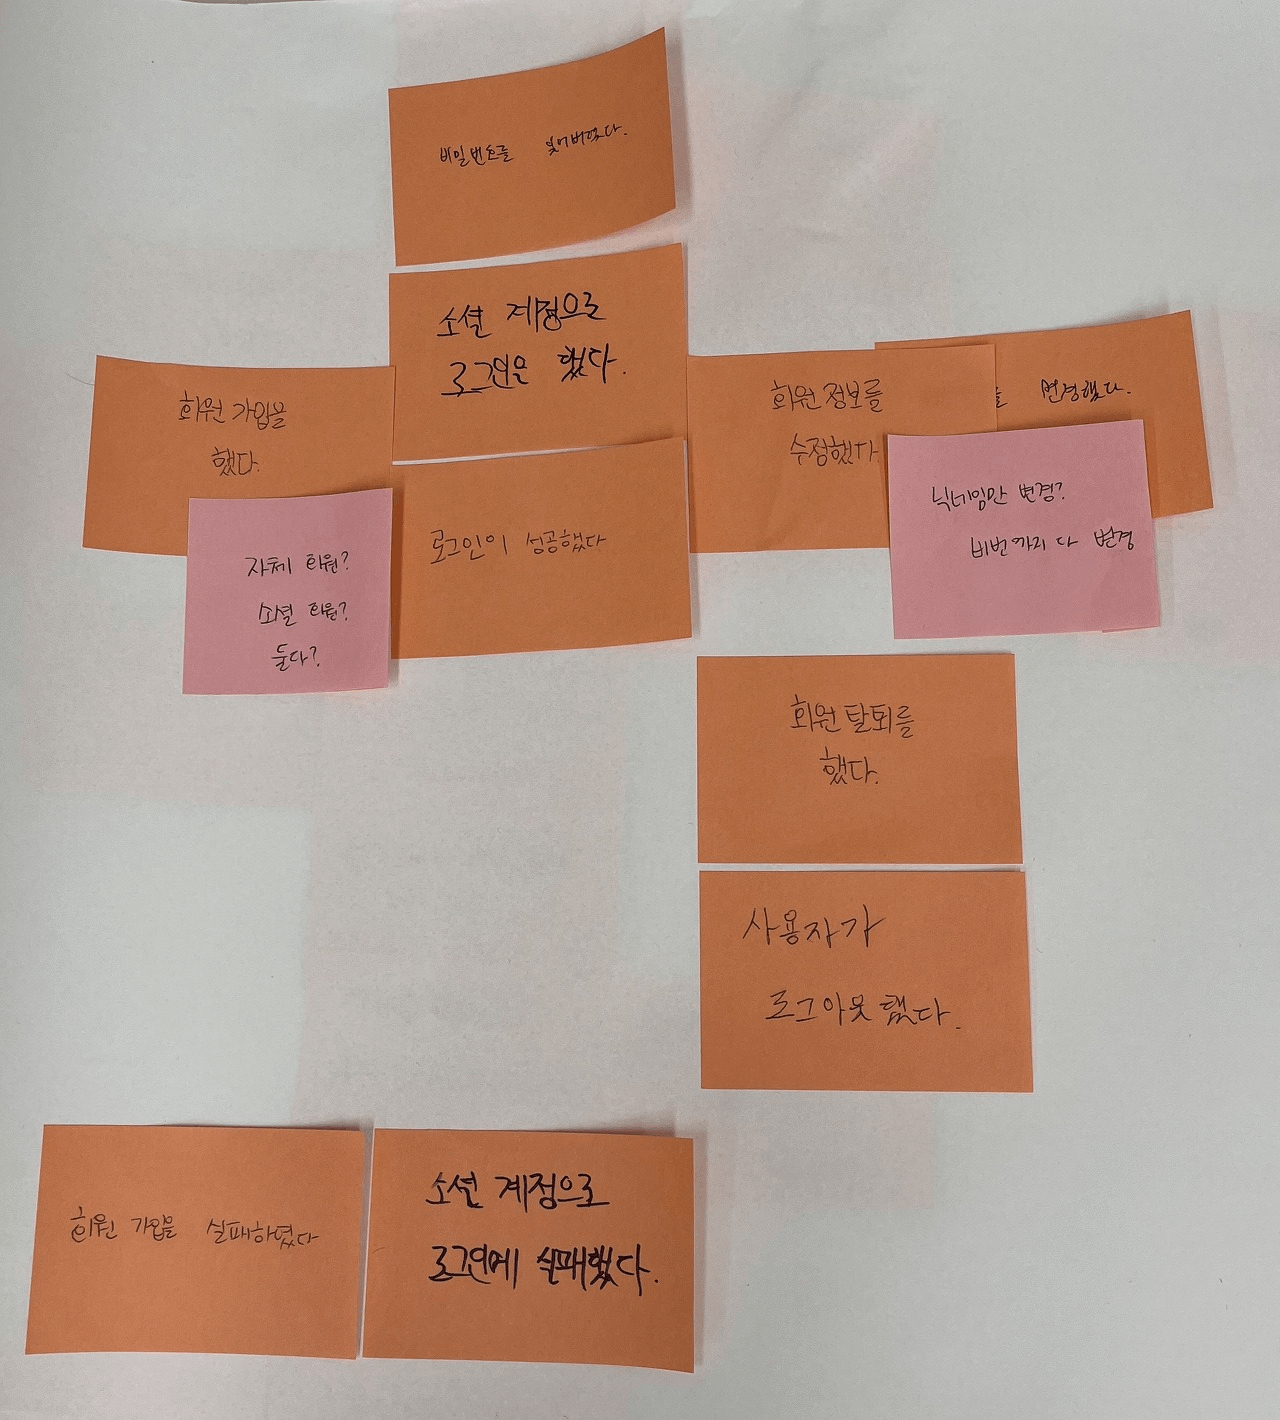 비밀번호를 잊어버렸다.
소셜 계정으로
로그인을 했다.
회원 가입을
했다.
자체 회원?
소셜 회원?
둘다?
로그인이 성공했다
회원 정보를
수정했다.
를 변경했다.
닉네임만 변경?
비번까지 다 변경
회원 탈퇴를
했다.
사용자가
로그아웃 했다.
회원 가입을 실패하였다
소셜 계정으로
로그인에 실패했다.